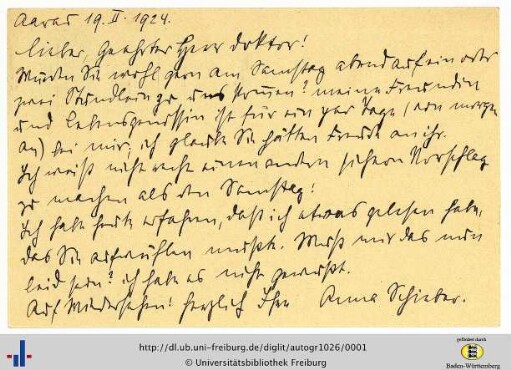 Aarau 19. II. 1924.
Lieber, Geehrter Herr Doktor!
Würden Sie wohl gern am Samstag abend auf ein oder
zwei Stündlein zu uns kommen? meine Freundin
und Lebensgenossin ist für ein paar Tage (von morgen
an) bei mir; ich glaube Sie hätten Freude an ihr.
Ich weiss nicht recht einen andern sichern Vorschlag
zu machen als den Samstag!
Ich habe heute erfahren, daß ich etwas gelesen habe,
das Sie aufwühlen musste. Muss mir das nun
leid sein? ich habe es nicht gewusst.
Auf Wiedersehen! herzlich Ihre Anna Schieber.
http://dl.ub.uni-freiburg.de/diglit/autogr1026/0001
© Universitätsbibliothek Freiburg
gefördert durch
Baden-Württemberg